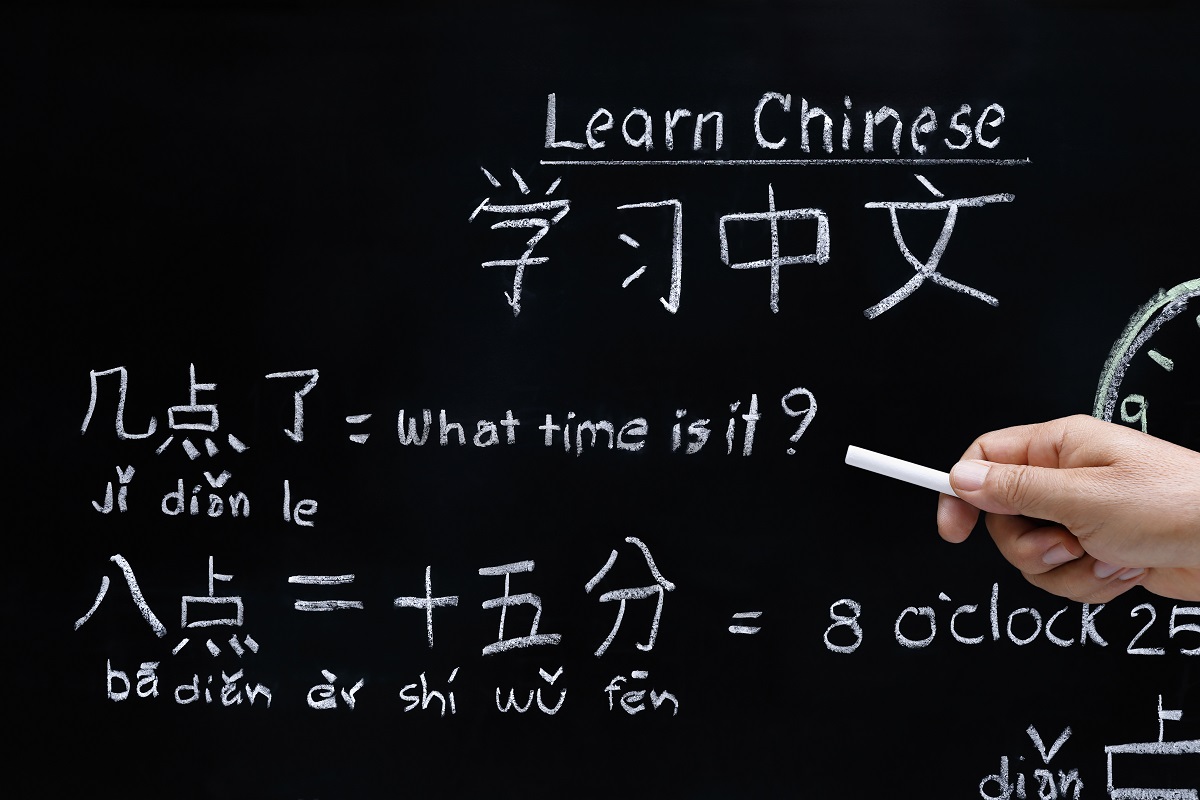 Learn Chinese
学习中文
9
几点了 = What time is it ?
jǐ diǎn le
八点二十五分 = 8 o'clock 25
bā diǎn èr shí wǔ fēn
diǎn